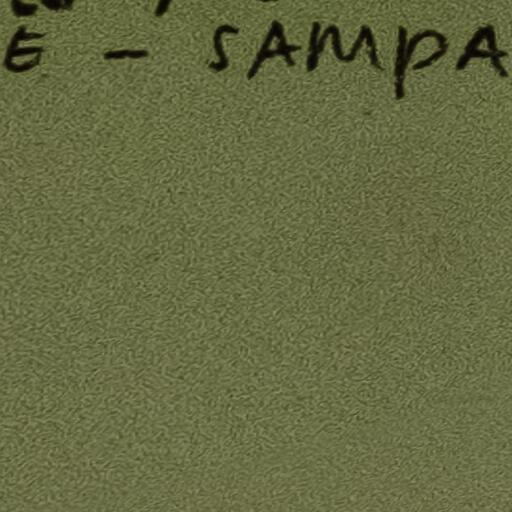 E - SAMPA